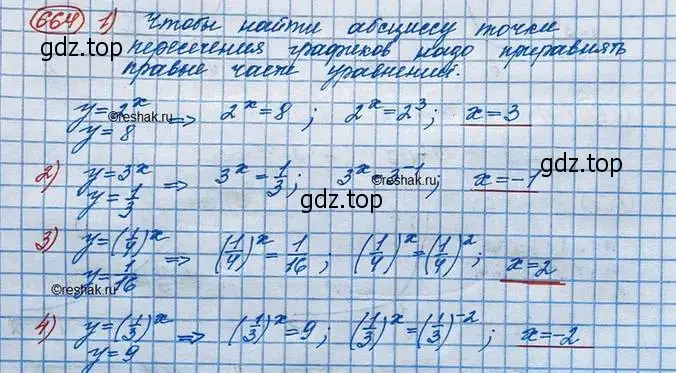 664 1) Чтобы найти абсциссу точки
пересечения графиков надо приравнять
gdz.top
правые части уравнений.
y=2ˣ
y=8 => 2ˣ=8; 2ˣ=2³; x=3
©reshak.ru
gdz.top
2) y=3ˣ
y=1/3 => 3ˣ=1/3; 3ˣ=3⁻¹; x=-1
©reshak.ru
gdz.top
3) y=(1/4)ˣ
y=1/16 => (1/4)ˣ=1/16; (1/4)ˣ=(1/4)²; x=2
©reshak.ru
4) y=(1/3)ˣ
y=9 => (1/3)ˣ=9; (1/3)ˣ=(1/3)⁻²; x=-2